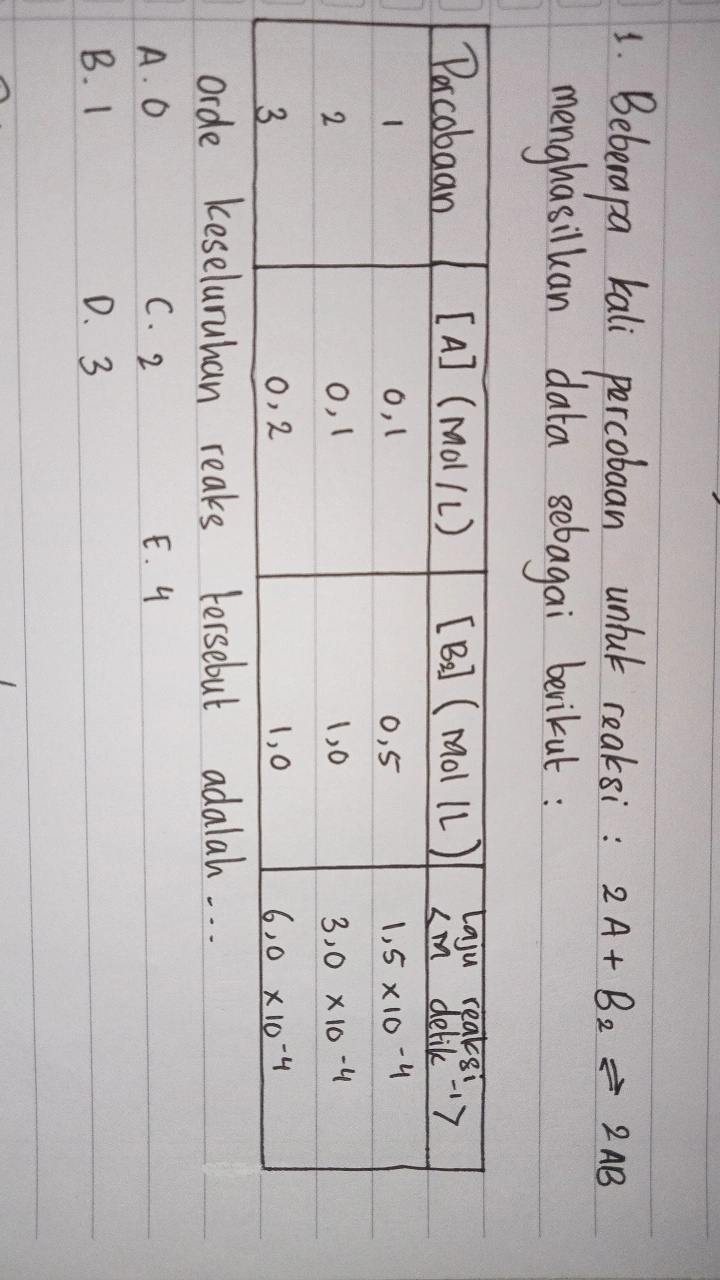 1. Beberapa kali percobaan untuk reaksi : 2 A + B₂ ⇌ 2AB
menghasilkan data sebagai berikut :
Percobaan [A] (Mol/L) [B₂] (Mol/L) Laju reaksi <M detik⁻¹>
1 0,1 0,5 1,5 x 10⁻⁴
2 0,1 1,0 3,0 x 10⁻⁴
3 0,2 1,0 6,0 x 10⁻⁴
Orde keseluruhan reaks tersebut adalah ...
A. 0 C. 2 E. 4
B. 1 D. 3